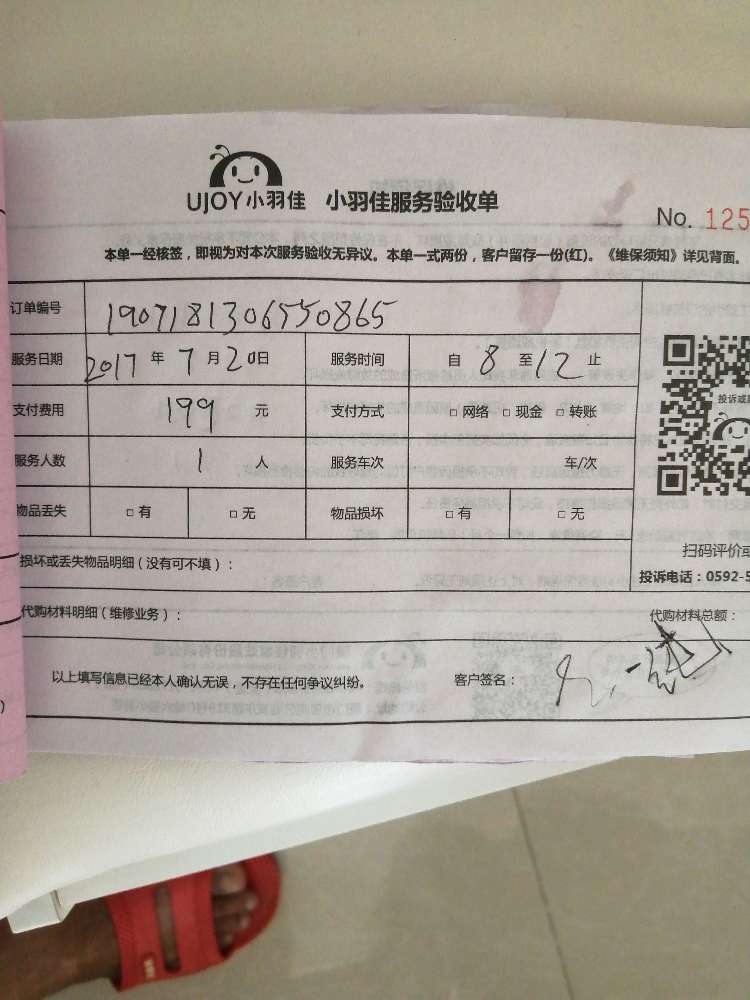 UJOY小羽佳 小羽佳服务验收单
No. 125
本单一经核签，即视为对本次服务验收无异议。本单一式两份，客户留存一份(红)。《维保须知》详见背面。
订单编号 1907181306550865
服务日期 2017 年 7 月 20日 服务时间 自 8 至 12 止
支付费用 199 元 支付方式 □ 网络 □ 现金 □ 转账
服务人数 1 人 服务车次 车/次
物品丢失 □ 有 □ 无 物品损坏 □ 有 □ 无
投诉或
扫码评价或
投诉电话：0592-5
损坏或丢失物品明细（没有可不填）：
代购材料明细（维修业务）： 代购材料总额：
以上填写信息已经本人确认无误，不存在任何争议纠纷。 客户签名：